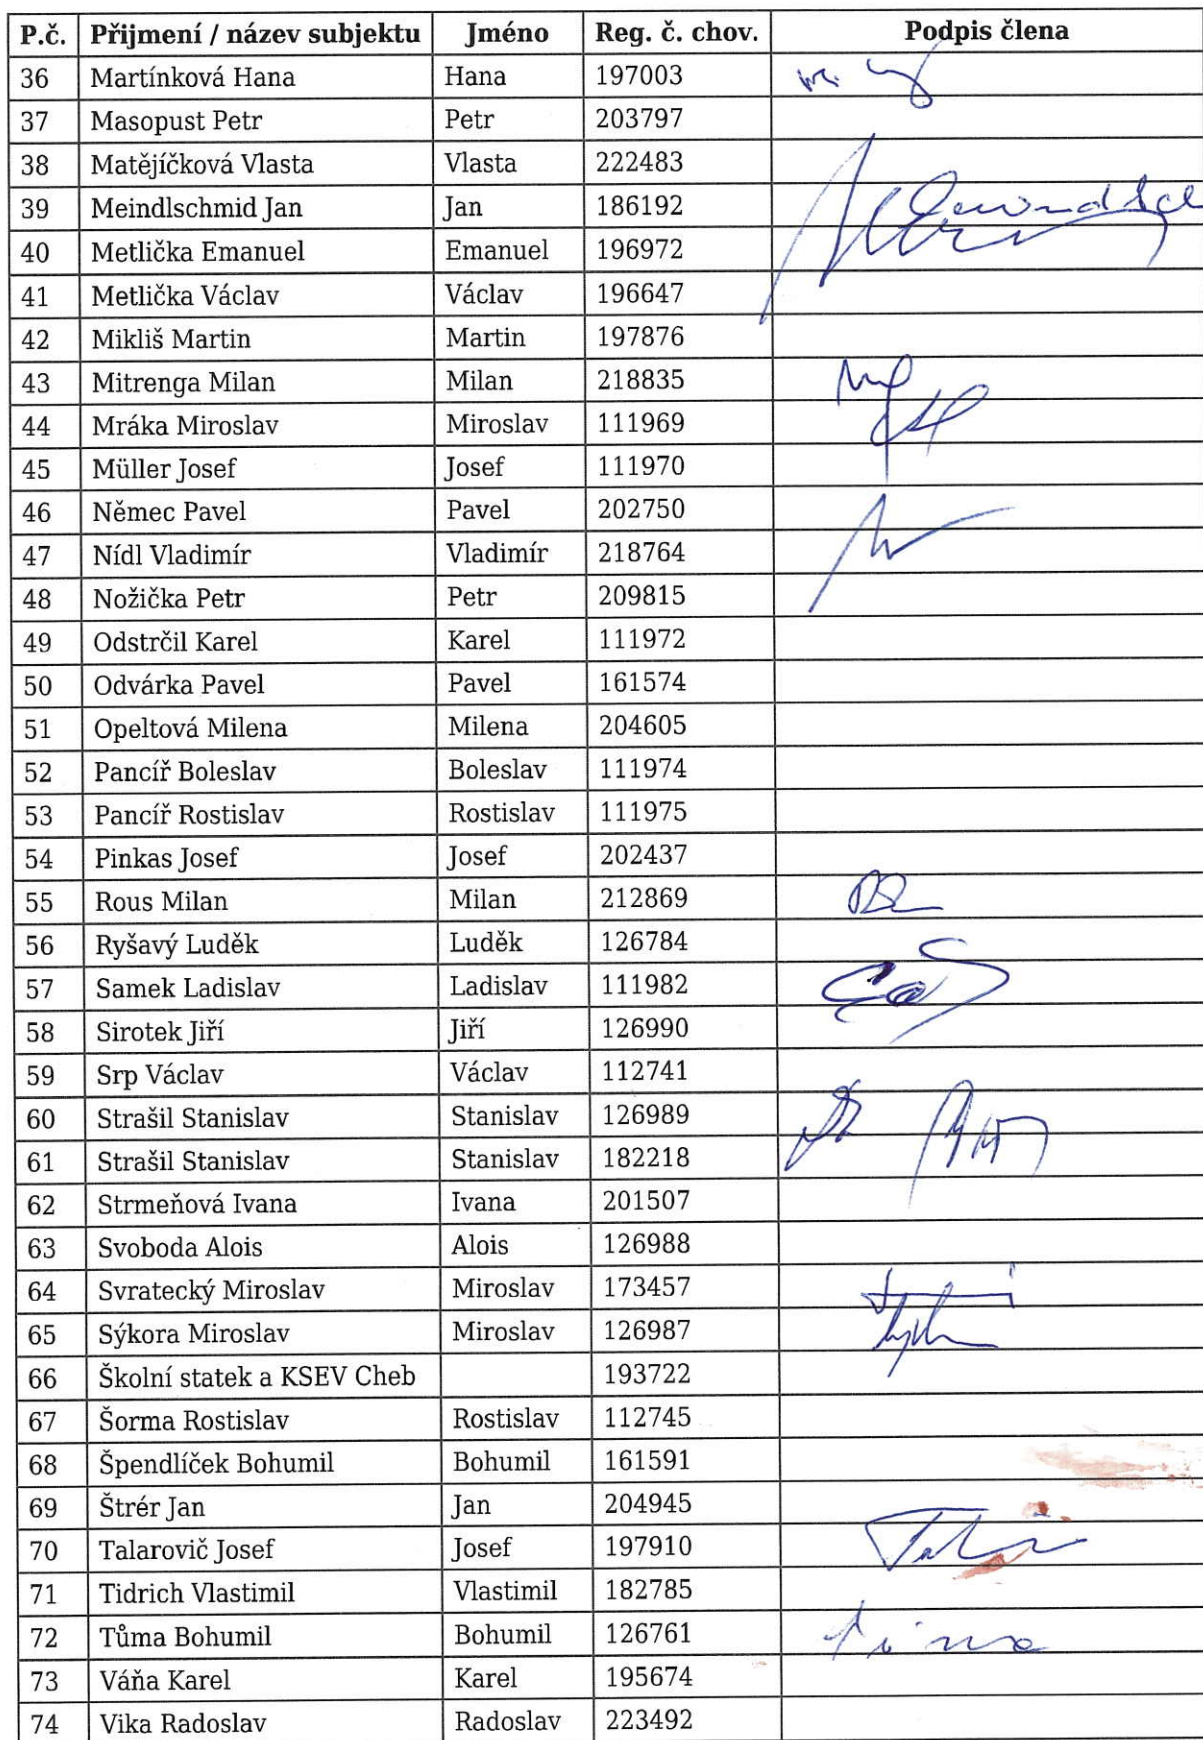 P.č. Přijmení / název subjektu Jméno Reg. č. chov. Podpis člena
36 Martínková Hana Hana 197003
37 Masopust Petr Petr 203797
38 Matějíčková Vlasta Vlasta 222483
39 Meindlschmid Jan Jan 186192
40 Metlička Emanuel Emanuel 196972
41 Metlička Václav Václav 196647
42 Mikliš Martin Martin 197876
43 Mitrenga Milan Milan 218835
44 Mráka Miroslav Miroslav 111969
45 Müller Josef Josef 111970
46 Němec Pavel Pavel 202750
47 Nídl Vladimír Vladimír 218764
48 Nožička Petr Petr 209815
49 Odstrčil Karel Karel 111972
50 Odvárka Pavel Pavel 161574
51 Opeltová Milena Milena 204605
52 Pancíř Boleslav Boleslav 111974
53 Pancíř Rostislav Rostislav 111975
54 Pinkas Josef Josef 202437
55 Rous Milan Milan 212869
56 Ryšavý Luděk Luděk 126784
57 Samek Ladislav Ladislav 111982
58 Sirotek Jiří Jiří 126990
59 Srp Václav Václav 112741
60 Strašil Stanislav Stanislav 126989
61 Strašil Stanislav Stanislav 182218
62 Strmeňová Ivana Ivana 201507
63 Svoboda Alois Alois 126988
64 Svratecký Miroslav Miroslav 173457
65 Sýkora Miroslav Miroslav 126987
66 Školní statek a KSEV Cheb 193722
67 Šorma Rostislav Rostislav 112745
68 Špendlíček Bohumil Bohumil 161591
69 Štrér Jan Jan 204945
70 Talarovič Josef Josef 197910
71 Tidrich Vlastimil Vlastimil 182785
72 Tůma Bohumil Bohumil 126761
73 Váňa Karel Karel 195674
74 Vika Radoslav Radoslav 223492